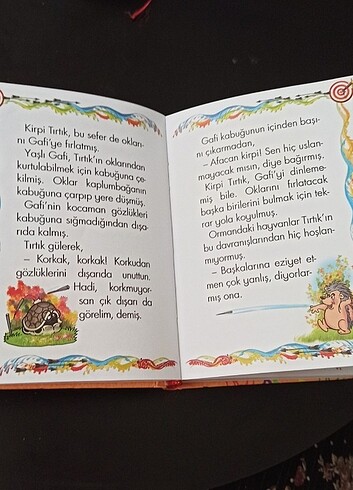 Kirpi Tırtık, bu sefer de okları-
nı Gafi'ye fırlatmış.
Yaşlı Gafi, Tırtık'ın oklarından
kurtulabilmek için kabuğuna çe-
kilmiş. Oklar kaplumbağanın
kabuğuna çarpıp yere düşmüş.
Gafi'nin kocaman gözlükleri
kabuğuna sığmadığından dışa-
rıda kalmış.
Tırtık gülerek,
– Korkak, korkak! Korkudan
gözlüklerini dışarıda unuttun.
Hadi, korkmuyor-
san çık dışarı da
görelim, demiş.
Gafi kabuğunun içinden başı-
nı çıkarmadan,
– Afacan kirpi! Sen hiç uslan-
mayacak mısın, diye bağırmış.
Kirpi Tırtık, Gafi'yi dinleme-
miş bile. Oklarını fırlatacak
başka birilerini bulmak için tek-
rar yola koyulmuş.
Ormandaki hayvanlar Tırtık'ın
bu davranışlarından hiç hoşlan-
mıyormuş.
– Başkalarına eziyet et-
men çok yanlış, diyorlar-
mış ona.